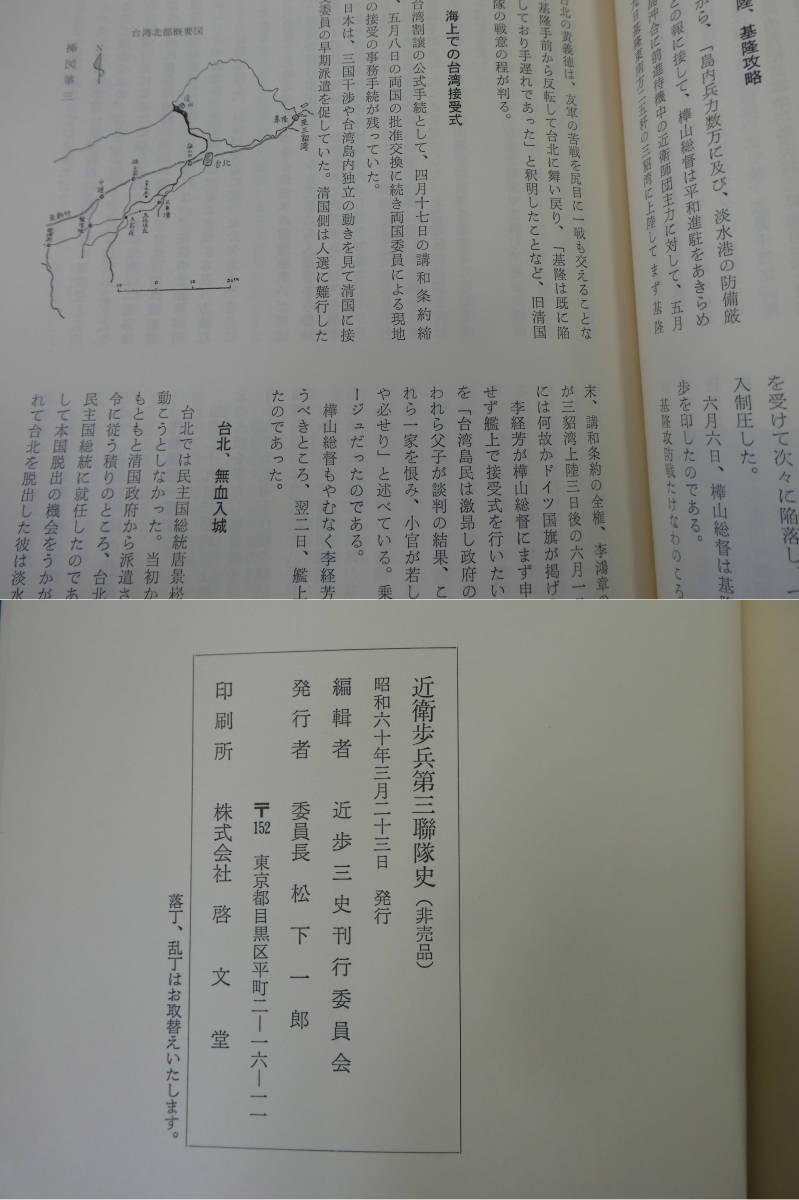 隆、基隆攻略
から、「島内兵力数万に及び、淡水港の防備厳
との報に接して、樺山総督は平和進駐をあきらめ
島沖合に前進待機中の近衛師団主力に対して、五月
の三貂湾に上陸してまず基隆
台北の黄義徳は、友軍の苦戦を尻目に一戦も交えることな
基隆手前から反転して台北に舞い戻り、「基隆は既に陥
しており手遅れであった」と釈明したことなど、旧清国
隊の戦意の程が判る。
海上での台湾接受式
台湾割譲の公式手続として、四月十七日の講和条約締
、五月八日の両国の批准交換に続き両国委員による現地
の接受の事務手続が残っていた。
日本は、三国干渉や台湾島内独立の動きを見て清国に接
受委員の早期派遣を促していた。清国側は人選に難行した
台湾北部概要図
挿図第三
N
至三貂湾
基隆
台北
を受けて次々に陥落し、
入制圧した。
六月六日、樺山総督は基
歩を印したのである。
基隆攻防戦たけなわのころ
末、講和条約の全権、李鴻章の
が三貂湾上陸三日後の六月一
には何故かドイツ国旗が掲げ
李経芳が樺山総督にまず申
せず艦上で接受式を行いたい
を「台湾島民は激昂し政府の
われら父子が談判の結果、こ
れら一家を恨み、小官が若し
や必せり」と述べている。乗
ージュだったのである。
樺山総督もやむなく李経芳
うべきところ、翌二日、艦上
たのであった。
台北、無血入城
台北では民主国総統唐景崧
動こうとしなかった。当初か
もともと清国政府から派遣さ
令に従う積りのところ、台北
民主国総統に就任したのであ
して本国脱出の機会をうかが
れて台北を脱出した彼は淡水
近衛歩兵第三聯隊史(非売品)
昭和六十年三月二十三日 発行
編輯者 近歩三史刊行委員会
発行者 委員長 松下一郎
〒152 東京都目黒区平町二―一六―一一
印刷所 株式会社 啓文堂
落丁、乱丁はお取替えいたします。